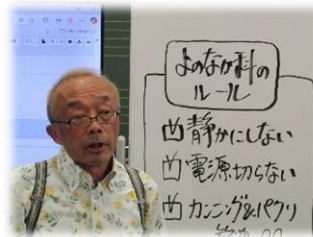 よのなか科の
ルール
凸静かにしない
凸電源切らない
凸カンニング&パクリ